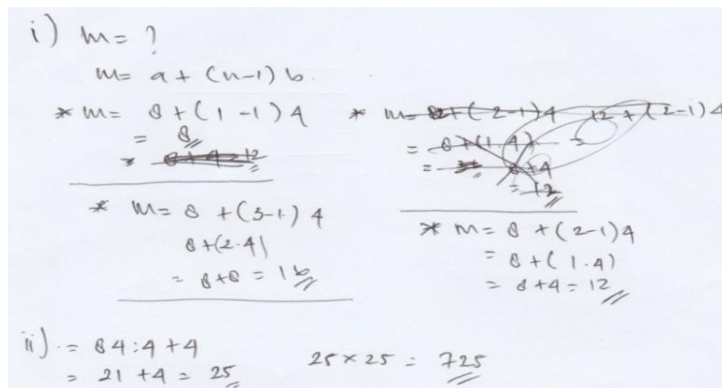 i) m = ?
m = a + (n-1) b.
* m = 8 + (1-1) 4
= 8
* 8+4=12
* m = 8 + (3-1) 4
8+(2.4)
= 8+8 = 16
12 + (2-1) 4
= 8+(1.4) =
8+4
= 12
* m = 8 + (2-1) 4
= 8 + (1.4)
= 8+4 = 12
ii) = 84:4+4
= 21 + 4 = 25
25 x 25 = 725